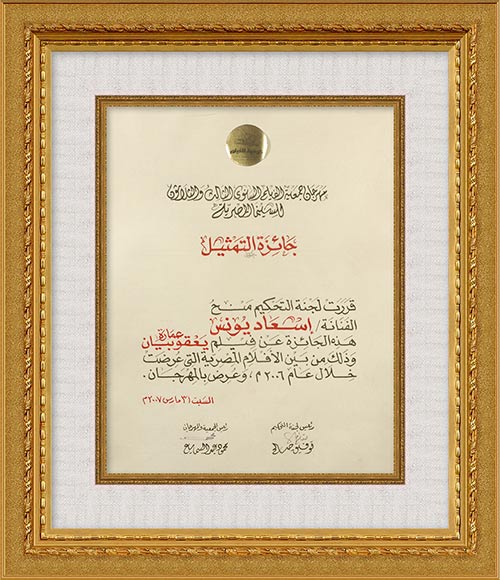 مهرجان جمعية الفيلم السنوي الثالث والثلاثون
للسينما المصرية
جائزة التمثيل
قررت لجنة التحكيم منح
الفنانة / إسعاد يونس
هذه الجائزة عن فيلم عمارة يعقوبيان
وذلك من بين الأفلام المصرية التي عرضت
خلال عام ٢٠٠٦م، وعرض بالمهرجان.
السبت ٣١ مارس ٢٠٠٧م
رئيس لجنة التحكيم
رئيس الجمعية والمهرجان
توفيق صالح
محمود عبد السميع